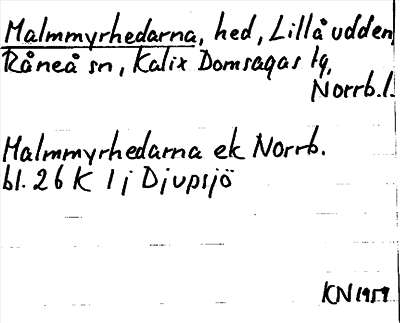 Malmmyrhedarna, hed, Lillåudden,
Råneå sn, Kalix Domsagas lg,
Norrb.l.
Malmmyrhedarna ek Norrb.
bl. 26 K 1j Djupsjö
KN 1959